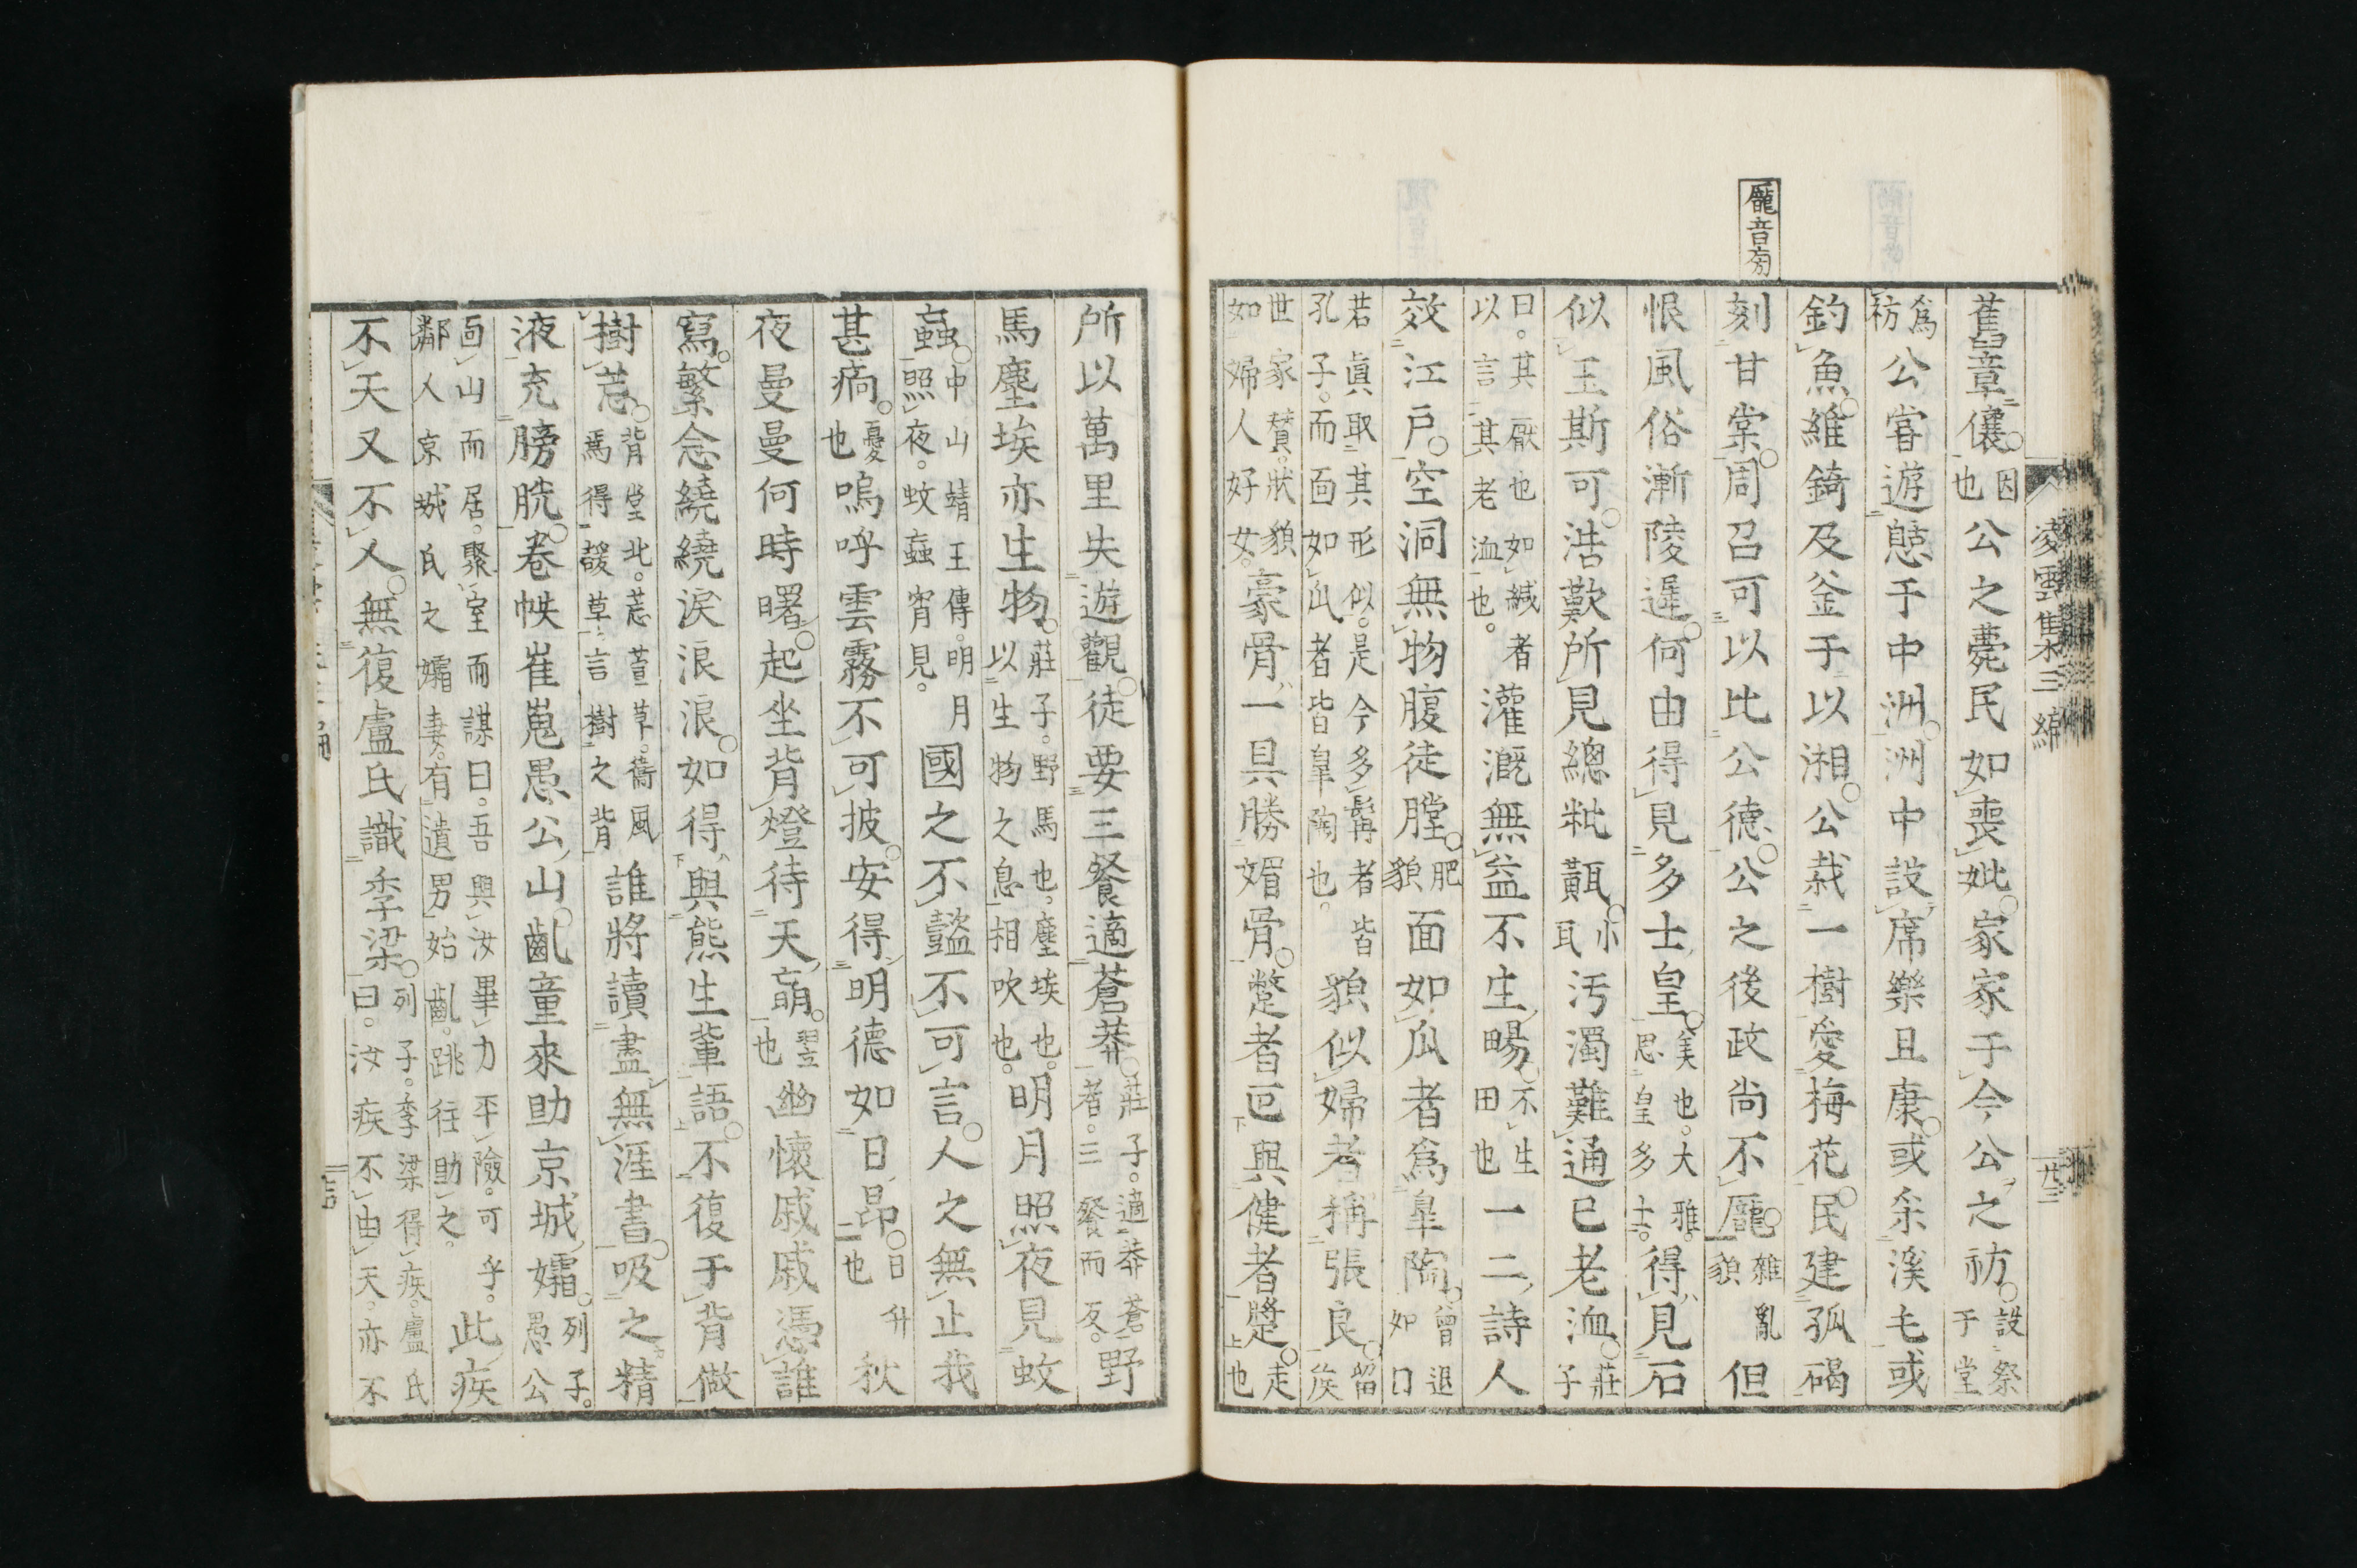 龎音旁
凌雲集三編
廿三
舊章儴因也公之薨民如喪妣家家于今公之祊設祭于堂
爲祊公嘗遊憩于中洲洲中設席樂且康或釆溪毛或
釣魚維錡及釜于以湘公栽一樹愛梅花民建孤碣
刻甘棠周召可以比公德公之後政尚不龎雜亂貌但
恨風俗漸陵遲何由得見多士皇美也大雅思皇多士得見石
似玉斯可浩歎所見總粃㼧小瓦汚濁難通已老洫莊子
曰其厭也如緘者以言其老洫也灌漑無益不生畼不生田也一二詩人
效江戸空洞無物腹徒膛肥貌面如瓜者爲皐陶曾退如口
若眞取其形似是今多髯者皆孔子而面如瓜者皆皐陶也貌似婦者稱張良留侯
世家賛狀貌如婦人好女豪骨一具勝媚骨蹩者叵與健者躄走也
所以萬里失遊觀徒要三餐適蒼莽莊子適莽蒼者三餐而反野
馬塵埃亦生物莊子野馬也塵埃也以生物之息相吹也明月照夜見蚊
蝱中山靖王傳明月照夜蚊蝱宵見國之不懿不可言人之無止我
甚㾂憂也嗚呼雲霧不可披安得明德如日昂日升也秋
夜曼曼何時曙起坐背燈待天萌翌也幽懷戚戚憑誰
寫繁念繞繞涙浪浪如得與熊生輩語不復于背做
樹萱背堂北萱萱草衞風焉得諼草言樹之背誰將讀盡無涯書吸之精
液充膀胱卷帙崔嵬愚公山齓童來助京城孀列子愚公
面山而居聚室而謀曰吾與汝畢力平險可乎鄰人京城氏之孀妻有遺男始齓跳往助之此疾
不天又不人無復盧氏識季梁列子季梁得疾盧氏曰汝疾不由天亦不